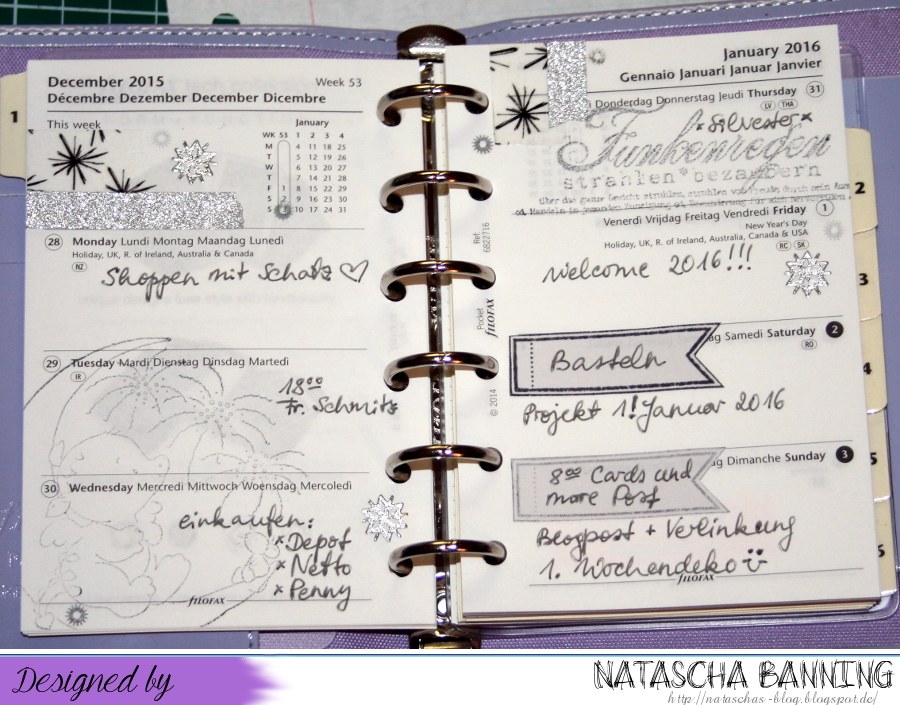 1
December 2015
Week 53
Décembre Dezember December Dicembre
This week
January
WK 53 1 2 3 4
M 4 11 18 25
T 5 12 19 26
W 6 13 20 27
T 7 14 21 28
F 1 8 15 22 29
S 2 9 16 23 30
S 3 10 17 24 31
28 Monday Lundi Montag Maandag Lunedì
Holiday, UK, R. of Ireland, Australia & Canada
NZ
Shoppen mit Schatz ♡
29 Tuesday Mardi Dienstag Dinsdag Martedì
IR
18⁰⁰
Fr. Schmitz
30 Wednesday Mercredi Mittwoch Woensdag Mercoledì
einkaufen:
*Depot
*Netto
*Penny
FILOFAX
Ref. 6822716
Pocket FILOFAX
© 2014
January 2016
Gennaio Januari Januar Janvier
Donderdag Donnerstag Jeudi Thursday 31
LV THA
*Silvester*
Funkenreden
strahlen*bezaubern
über das ganze Gesicht strahlen, strahlen vor Freude durch sein
Venerdì Vrijdag Freitag Vendredi Friday 1
New Year's Day
Holiday, UK, R. of Ireland, Australia, Canada & USA
RC SK
Welcome 2016!!!
ag Samedi Saturday 2
RO
Basteln
Projekt 1! Januar 2016
ag Dimanche Sunday 3
8⁰⁰ Cards und
more Post
Blogpost + Verlinkung
1. Wochendeko
FILOFAX
2
3
4
5
Designed by
NATASCHA BANNING
http://nataschas-blog.blogspot.de/